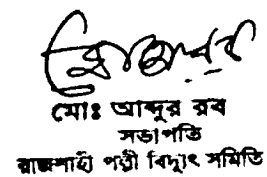 মোঃ আব্দুর রব
সভাপতি
রাজশাহী পল্লী বিদ্যুৎ সমিতি